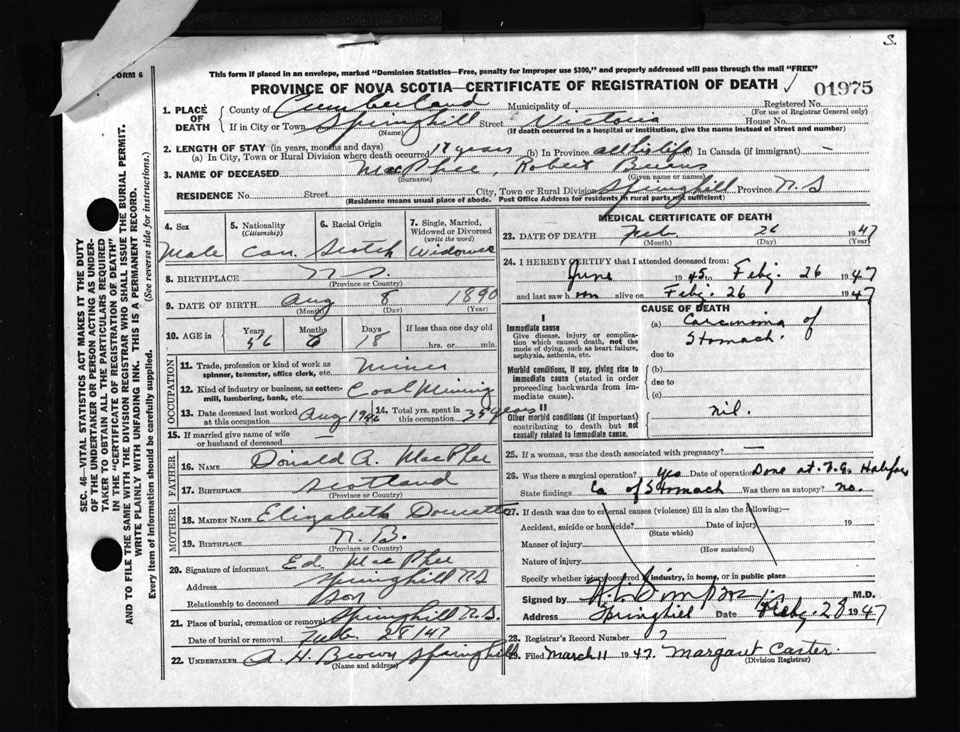 S.
FORM 6
This form if placed in an envelope, marked "Dominion Statistics—Free, penalty for improper use $300," and properly addressed will pass through the mail "FREE"
PROVINCE OF NOVA SCOTIA—CERTIFICATE OF REGISTRATION OF DEATH
01975
1. PLACE OF DEATH
County of Cumberland Municipality of Registered No.
(For use of Registrar General only)
If in City or Town Springhill Street Victoria House No.
(Name) (If death occurred in a hospital or institution, give the name instead of street and number)
2. LENGTH OF STAY (in years, months and days)
(a) In City, Town or Rural Division where death occurred 17 years (b) In Province all his life In Canada (if immigrant) —
3. NAME OF DECEASED MacPhee, Robert Burns
(Surname) (Given name or names)
RESIDENCE No. Street City, Town or Rural Division Springhill Province N.S
(Residence means usual place of abode. Post Office Address for residents in rural parts not sufficient)
4. Sex
Male
5. Nationality
(Citizenship)
Can.
6. Racial Origin
Scotch
7. Single, Married, Widowed or Divorced
(write the word)
Widower
8. BIRTHPLACE N.S.
(Province or Country)
9. DATE OF BIRTH Aug 8 1890
(Month) (Day) (Year)
10. AGE in Years Months Days If less than one day old
56 6 18 hrs. or min.
OCCUPATION
11. Trade, profession or kind of work as
spinner, teamster, office clerk, etc. Miner
12. Kind of industry or business, as cotton-
mill, lumbering, bank, etc. Coal Mining
13. Date deceased last worked
at this occupation Aug 1946
14. Total yrs. spent in
this occupation 35 years
15. If married give name of wife
or husband of deceased —
FATHER
16. NAME Donald A. MacPhee
17. BIRTHPLACE Scotland
(Province or Country)
MOTHER
18. MAIDEN NAME Elizabeth
19. BIRTHPLACE N.B.
(Province or Country)
20. Signature of informant Ed. MacPhee
Address Springhill NS
Relationship to deceased Son
21. Place of burial, cremation or removal Springhill N.S.
Date of burial or removal Feb. 28/47
22. UNDERTAKER A. H. Brown Springhill
(Name and address)
MEDICAL CERTIFICATE OF DEATH
23. DATE OF DEATH Feb. 26 1947
(Month) (Day) (Year)
24. I HEREBY CERTIFY that I attended deceased from:
June 1945 to Feb. 26 1947
and last saw him alive on Feb. 26 1947
I
Immediate cause
Give disease, injury or complication which caused death, not the mode of dying, such as heart failure, asphyxia, asthenia, etc.
Morbid conditions, if any, giving rise to immediate cause (stated in order proceeding backwards from immediate cause).
II
Other morbid conditions (if important) contributing to death but not causally related to immediate cause.
CAUSE OF DEATH
(a) Carcinoma of
Stomach.
due to
(b)
due to
(c)
nil.
25. If a woman, was the death associated with pregnancy? —
26. Was there a surgical operation? Yes Date of operation Done at Halifax
State findings Ca of Stomach Was there an autopsy? no.
27. If death was due to external causes (violence) fill in also the following:—
Accident, suicide or homicide? Date of injury 19
(State which)
Manner of injury
(How sustained)
Nature of injury
Specify whether injury occurred in industry, in home, or in public place
Signed by M.D.
Address Springhill Date Feb. 28 1947
28. Registrar's Record Number 7
29. Filed March 11 1947. Margaret Carter.
(Division Registrar)
SEC. 46—VITAL STATISTICS ACT MAKES IT THE DUTY
OF THE UNDERTAKER OR PERSON ACTING AS UNDER-
TAKER TO OBTAIN ALL THE PARTICULARS REQUIRED
IN THE "CERTIFICATE OF REGISTRATION OF DEATH"
AND TO FILE THE SAME WITH THE DIVISION REGISTRAR WHO SHALL ISSUE THE BURIAL PERMIT.
WRITE PLAINLY WITH UNFADING INK. THIS IS A PERMANENT RECORD.
Every item of information should be carefully supplied. (See reverse side for instructions.)